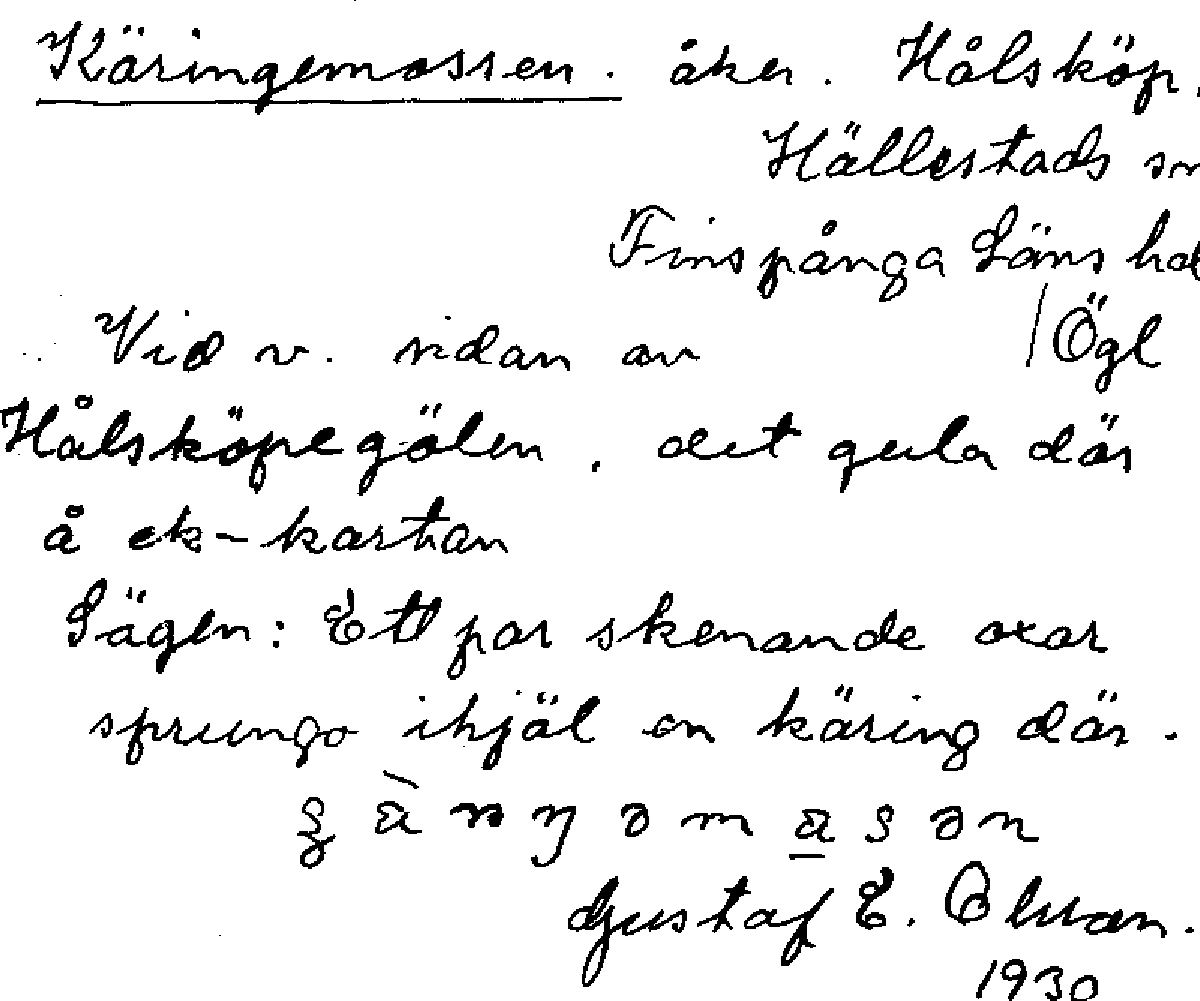 Käringemossen. åker. Hålsköp.
Hällestads sn
Finspånga Läns hd
Vid v. sidan av /Ögl
Hålsköpegölen, det gula där
å ek-kartan
Sägen: Ett par skenande oxar
sprungo ihjäl en käring där.
Gustaf E.
1930